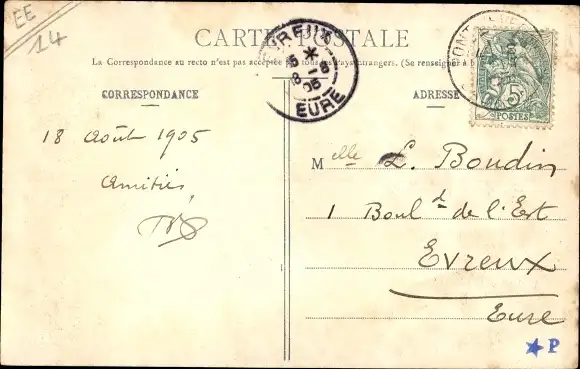 EE
14
CARTE POSTALE
La Correspondance au recto n'est pas acceptée par tous les pays étrangers. (Se renseigner à
CORRESPONDANCE
ADRESSE
EVREUX
EURE
5c
POSTES
18 Août 1905
Amitiés
Melle L. Boudin
1 Bould de l'Est
Evreux
Eure
★P